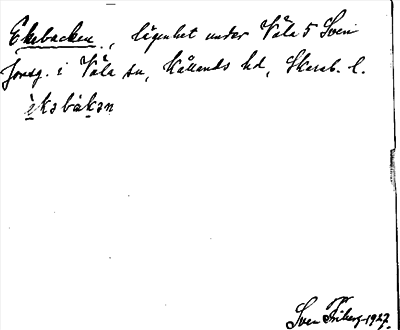 Ekebacken, lägenhet under Väla 5 Sven
Jonsg. i Väla sn, Kållands hd, Skarab. l.
èkəbàkən
Sven Friberg 1927.